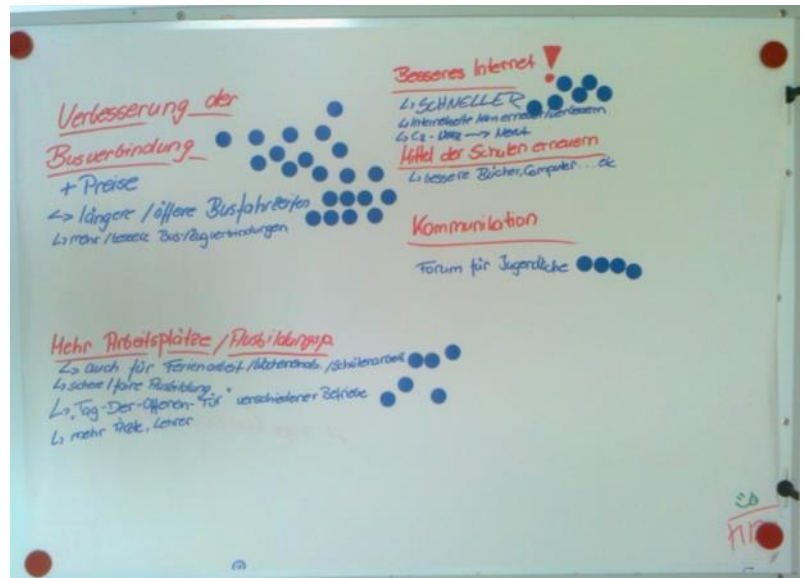 Verbesserung der
Busverbindung
+ Preise
↳ längere / öftere Busfahrzeiten
↳ mehr / bessere Bus/Zugverbindungen
Besseres Internet !
↳ SCHNELLER
↳ Internetseite
↳ Netz → Neu
Mittel der Schulen erneuern
↳ bessere Bücher, Computer ... etc
Kommunikation
Forum für Jugendliche
Mehr Arbeitsplätze / Ausbildungsp.
↳ auch für Ferienarbeit / /Schülerarbeit
↳ faire Ausbildung
↳ "Tag-Der-Offenen-Tür" verschiedener Betriebe
↳ mehr Ärzte, Lehrer